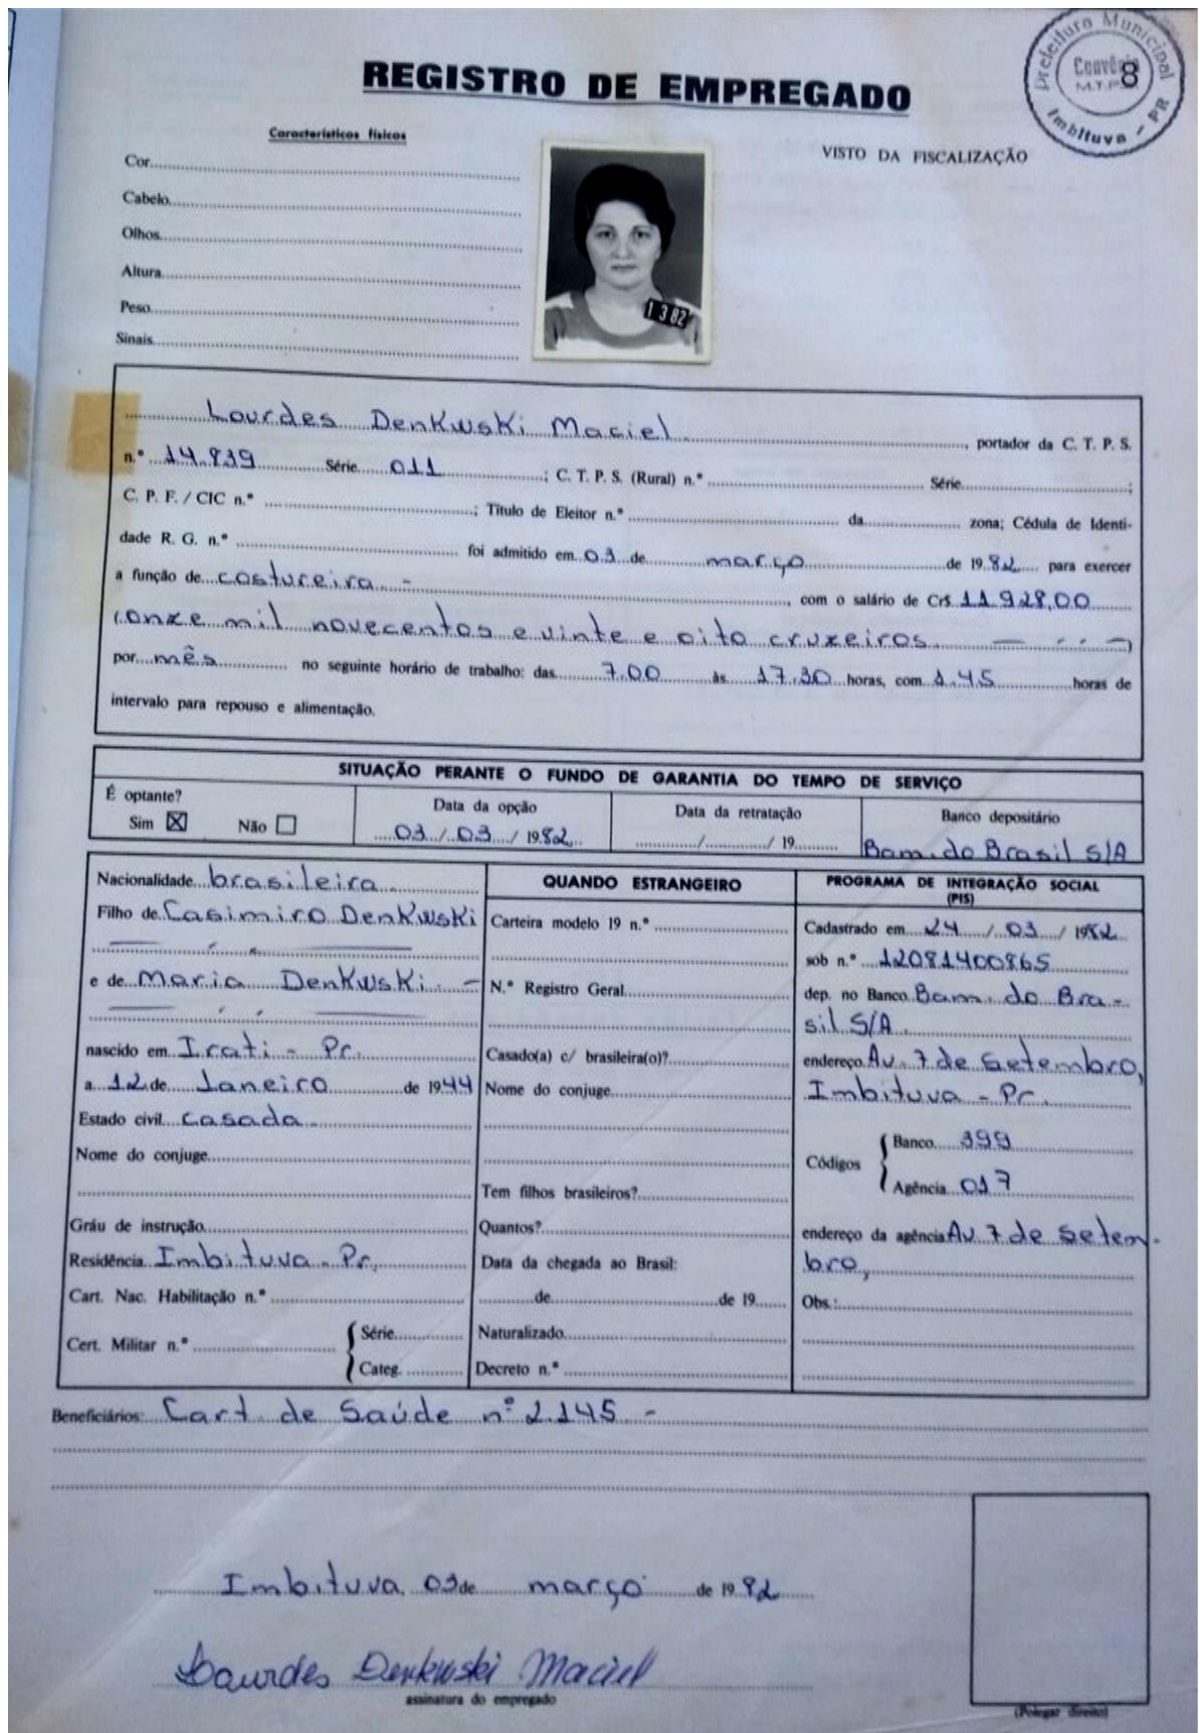 Prefeitura Municipal
Convênio
M.T.P.S.
8
Imbituva - PR
REGISTRO DE EMPREGADO
Característicos físicos
VISTO DA FISCALIZAÇÃO
Cor
Cabelo
Olhos
Altura
Peso
Sinais
1 3 82
Lourdes Denkwski Maciel, portador da C. T. P. S.
n.º 14.839 Série 011; C. T. P. S. (Rural) n.º Série;
C. P. F. / CIC n.º ; Título de Eleitor n.º da zona; Cédula de Identi-
dade R. G. n.º foi admitido em 03 de março de 1982 para exercer
a função de costureira -, com o salário de Cr$ 11 928,00
(onze mil novecentos e vinte e oito cruzeiros. — . . —)
por mês no seguinte horário de trabalho: das 7.00 às 17.30 horas, com 1.45 horas de
intervalo para repouso e alimentação.
SITUAÇÃO PERANTE O FUNDO DE GARANTIA DO TEMPO DE SERVIÇO
É optante?
Sim ☒ Não ☐
Data da opção
03 / 03 / 1982
Data da retratação
/ / 19
Banco depositário
Bam. do Brasil S/A
Nacionalidade brasileira
Filho de Casimiro Denkwski
e de Maria Denkwski. -
nascido em Irati - Pr.
a 12 de Janeiro de 1944
Estado civil casada
Nome do conjuge
Gráu de instrução
Residência Imbituva - Pr,
Cart. Nac. Habilitação n.º
Cert. Militar n.º { Série
Categ.
QUANDO ESTRANGEIRO
Carteira modelo 19 n.º
N.º Registro Geral
Casado(a) c/ brasileira(o)?
Nome do conjuge
Tem filhos brasileiros?
Quantos?
Data da chegada ao Brasil:
de de 19
Naturalizado
Decreto n.º
PROGRAMA DE INTEGRAÇÃO SOCIAL
(PIS)
Cadastrado em 24 / 03 / 1982
sob n.º 12081400865
dep. no Banco Bam. do Bra-
sil S/A.
endereço Av. 7 de Setembro,
Imbituva - Pr.
Códigos { Banco 399
Agência 017
endereço da agência Av 7 de Setem-
bro,
Obs.:
Beneficiários: Cart. de Saúde nº 2.145 -
Imbituva, 03 de março de 1982
Lourdes Denkwski Maciel
assinatura do empregado
(Polegar direito)